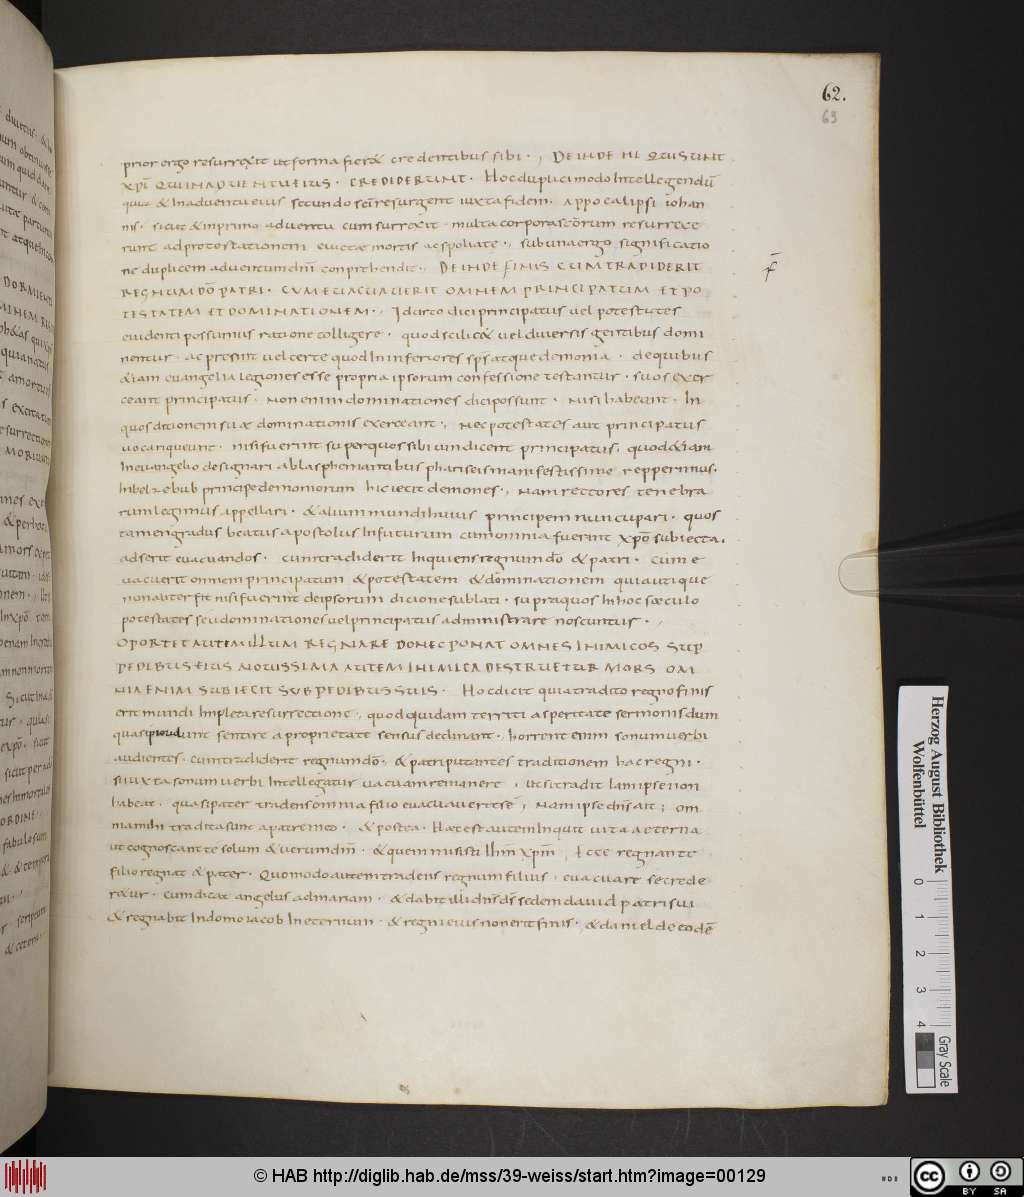 62.
63
prior ergo resurrexit ut forma fier& credentibus sibi ·, DEINDE HI QUI SUNT
XPI QUI IN ADUENTU EIUS · CREDIDERUNT · Hoc duplici modo Intellegendū
quia & In aduentu eius secundo sc̄i resurgent iuxta fidem · appocalipsi iohan
nis · sicut & in primo aduentu cum surrexit · multa corpora sc̄orum resurrexe
runt ad protestationem euictae mortis ac spoliate ·, sub una ergo significatio
ne duplicem aduentum dn̄i conprehendit ·, DEINDE FINIS CUM TRADIDERIT
REGNUM DŌ PATRI · CUM EUACUAUERIT OMNEM PRINCIPATUM ET PO
TESTATEM ET DOMINATIONEM ·, Idcirco dici principatus uel potestates
euidenti possumus ratione colligere · quod scilic& uel diuersis gentibus domi
nentur · ac presint uel certe quod In inferiores sps atque demonia · de quibus
&iam euangelia legiones esse propria ipsorum confessione testantur · suos exer
ceant principatus · Non enim dominationes dici possunt · Nisi habeant · In
quos ditionem suae dominationis exerceant ·, Nec potestates aut principatus
uocari queunt · nisi fuerint super quos sibi uindicent principatus, quod &iam
In euangelio designari a blasphemantibus phariseis manifestissime repperimus ·
In belzebub principe demoniorum hic iecit demones ·, Nam rectores tenebra
rum legimus appellari · & alium mundi huius principem nuncupari · quos
tamen gradus beatus apostolus In futurum cum omnia fuerint xp̄o subiecta,
adserit euacuandos · cum tradiderit Inquiens regnum dō & patri · cum e
uacuerit omnem principatum & potestatem & dominationem quia utique
non aliter fit nisi fuerint de ipsorum dicione sublati · supra quos In hoc sæculo
potestates seu dominationes uel principatus administrare noscuntur ·,
OPORTET AUTEM ILLUM REGNARE DONEC PONAT OMNES INIMICOS SUP
PEDIBUS EIUS NOUISSIMA AUTEM INIMICA DESTRUETUR MORS OM
NIA ENIM SUBIECIT SUB PEDIBUS SUIS · Hoc dicit quia tradito regno finis
erit mundi Impleta resurrectione ·, quod quidam territi asperitate sermonis dum
quasi pioui dunt sentire a proprietate sensus declinant · horrent enim sonum uerbi
audientes · cum tradiderit regnum dō · & patri putantes traditionem hac regni ·
si iuxta sonum uerbi Intellegatur uacuam remanere · ut si tradit Iam ipse non
habeat · quasi pater tradens omnia filio euacuauerit sē, Nam ipse dn̄s ait; om
nia mihi tradita sunt a patre meo · & postea · Haec est autem Inquit uita aeterna
ut cognoscant te solum & uerum dm̄ · & quem misisti Ihm̄ xpm̄, Ecce regnante
filio regnat & pater · Quomodo autem tradens regnum filius · euacuare se crede
r&ur · cum dicat angelus ad mariam · & dabit illi dn̄s ds̄ sedem dauid patris sui
& regnabit In domo iacob In eternum · & regni eius non erit finis ·, & daniel de eodē
Herzog August Bibliothek
Wolfenbüttel
0 1 2 3 4
Gray Scale
© HAB http://diglib.hab.de/mss/39-weiss/start.htm?image=00129
cc BY SA